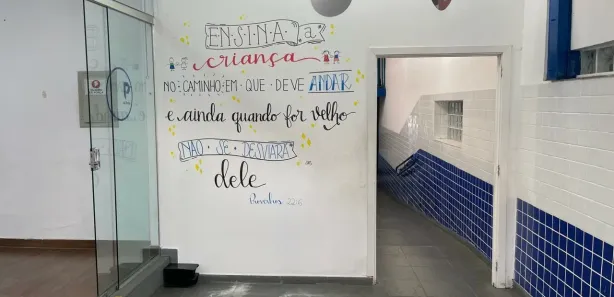 E·N·S·I·N·A a
criança
NO·CAMINHO·EM·QUE·DEVE ANDAR
e ainda quando for velho
NÃO·SE·DESVIARÁ
dele
Provérbios 22:6
P